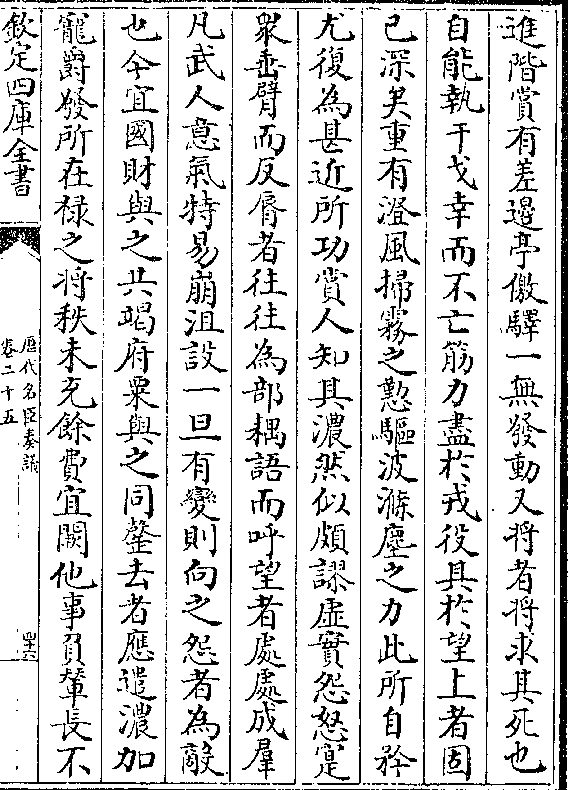 進階賞有差邊亭徼驛一無發動又将者将求其死也
自能執干戈幸而不亡筋力盡於戎役其於望上者固
已深矣重有澄風掃霧之懃驅波滌塵之力此所自矜
尤復為甚近所功賞人知其濃然似頗謬虛實怨怒寔
衆垂臂而反脣者往往為部耦語而呼望者處處成羣
凡武人意氣特易崩沮設一旦有變則向之怨者為敵
也今宜國財與之共竭府粟與之同罄去者應遣濃加
寵爵發所在禄之将秩未充餘費宜闕他事負輦長不
欽定四庫全書
歴代名臣奏議
卷二十五
四十六